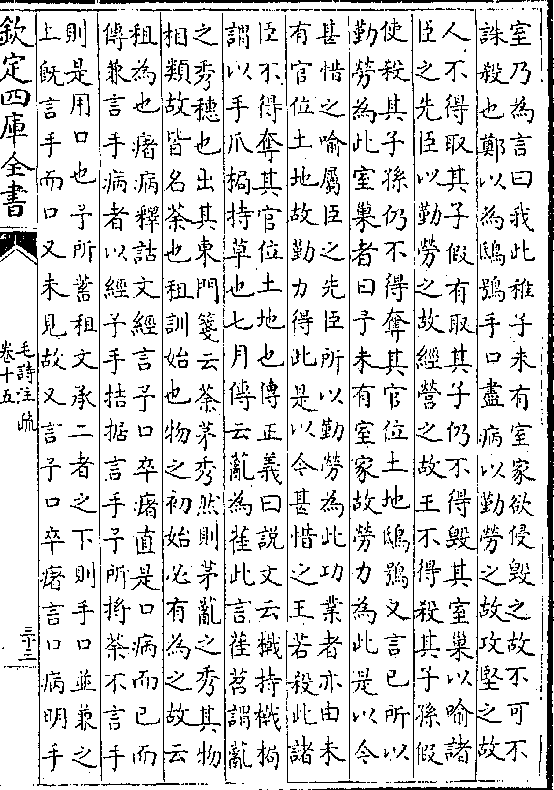 室乃為言曰我此稚子未有室家欲侵毀之故不可不
誅殺也鄭以為鴟鴞手口盡病以勤勞之故攻堅之故
人不得取其子假有取其子仍不得毀其室巢以喻諸
臣之先臣以勤勞之故經營之故王不得殺其子孫假
使殺其子孫仍不得奪其官位土地鴟鴞又言已所以
勤勞為此室巢者曰予未有室家故勞力為此是以今
甚惜之喻屬臣之先臣所以勤勞為此功業者亦由未
有官位土地故勤力得此是以令甚惜之王若殺此諸
臣不得奪其官位土地也傳正義曰説文云㦸持㦸挶
謂以手爪挶持草也七月傳云薍為萑此言萑苕謂薍
之秀穗也出其東門箋云荼茅秀然則茅薍之秀其物
相類故皆名荼也租訓始也物之初始必有為之故云
租為也瘏病釋詁文經言予口卒瘏直是口病而已而
傳兼言手病者以經予手拮据言手予所捋荼不言手
則是用口也予所蓄租文承二者之下則手口並兼之
上旣言手而口又未見故又言予口卒瘏言口病明手
欽定四庫全書
毛詩注疏
卷十五
三十二